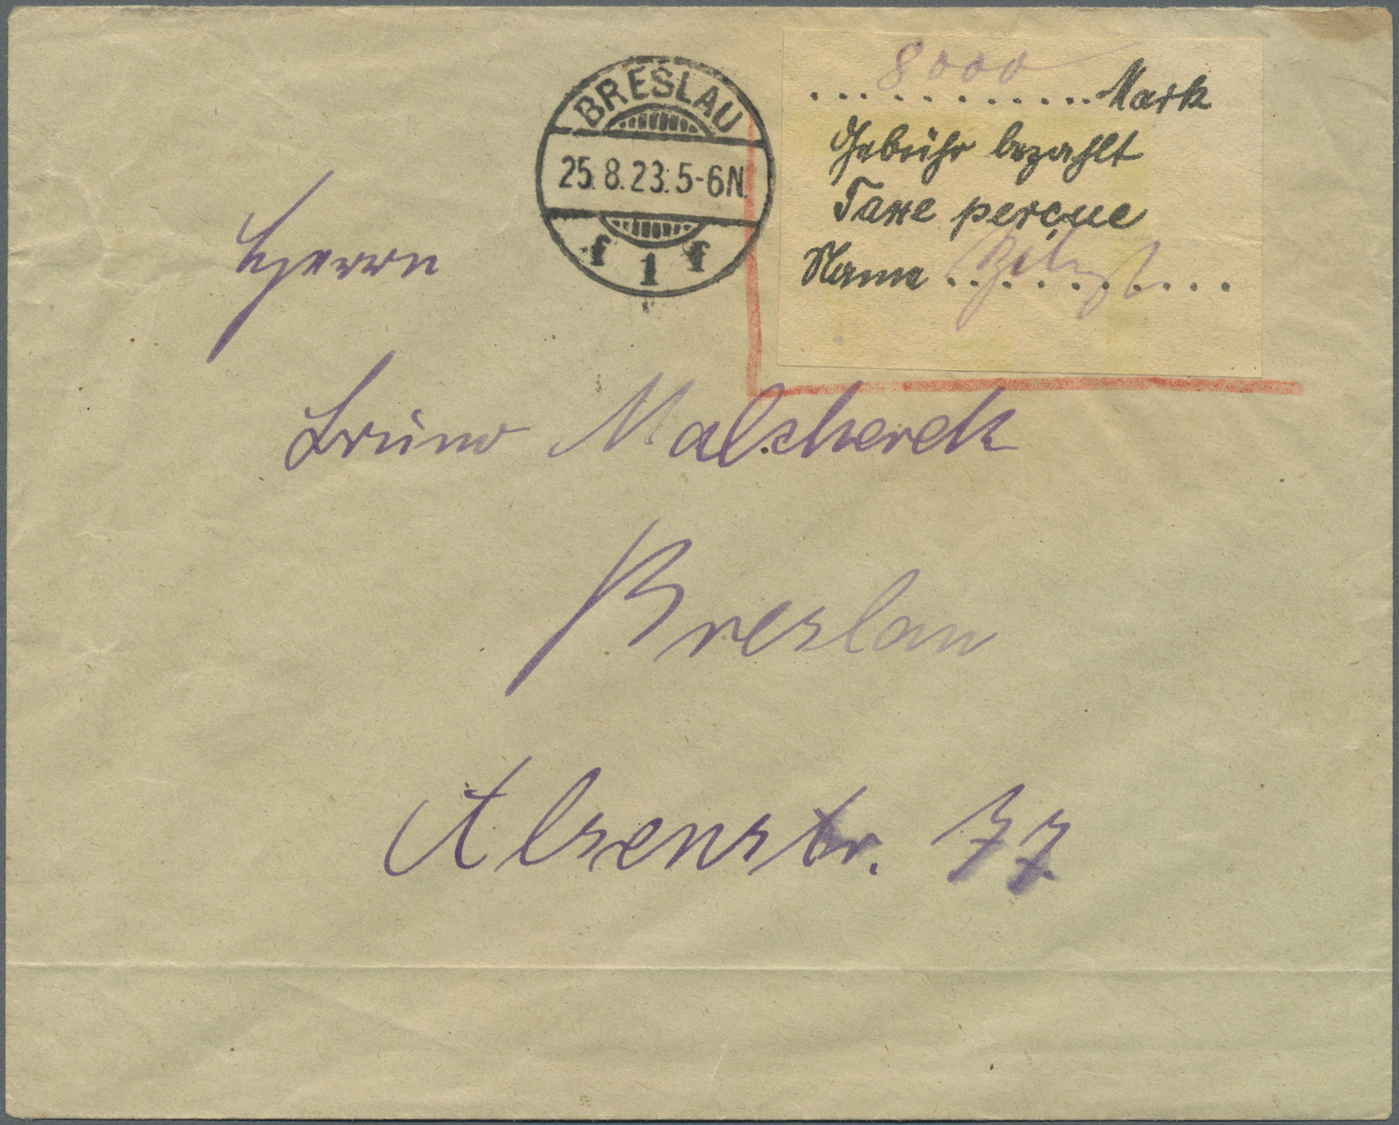 BRESLAU
25.8.23.5-6N.
f 1 f
8000
............Mark
Gebühr bezahlt
Taxe perçue
Name ...........
Herrn
Bruno Malcherek
Breslau
Alsenstr. 77.